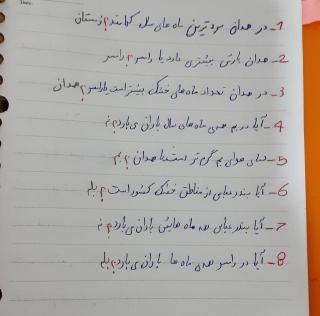 1- در همدان سردترین ماه های سال کدامند؟ زمستان
2- همدان بارش بیشتری دارد یا رامسر؟ رامسر
3- در همدان تعداد ماه های خشک بیشتر است یا رامسر؟ همدان
4- آیا در بم همه ی ماه های سال باران می بارد؟ نه
5- دمای هوای بم گرم تر است یا همدان؟ بم
6- آیا بندرعباس از مناطق خشک کشور است؟ بله
7- آیا بندرعباس همه ماه هایش باران می بارد؟ نه
8- آیا در رامسر همه ی ماه ها باران می بارد؟ بله